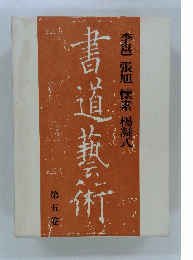 李邕 張旭 懐素 楊凝式
書道藝術
第五巻